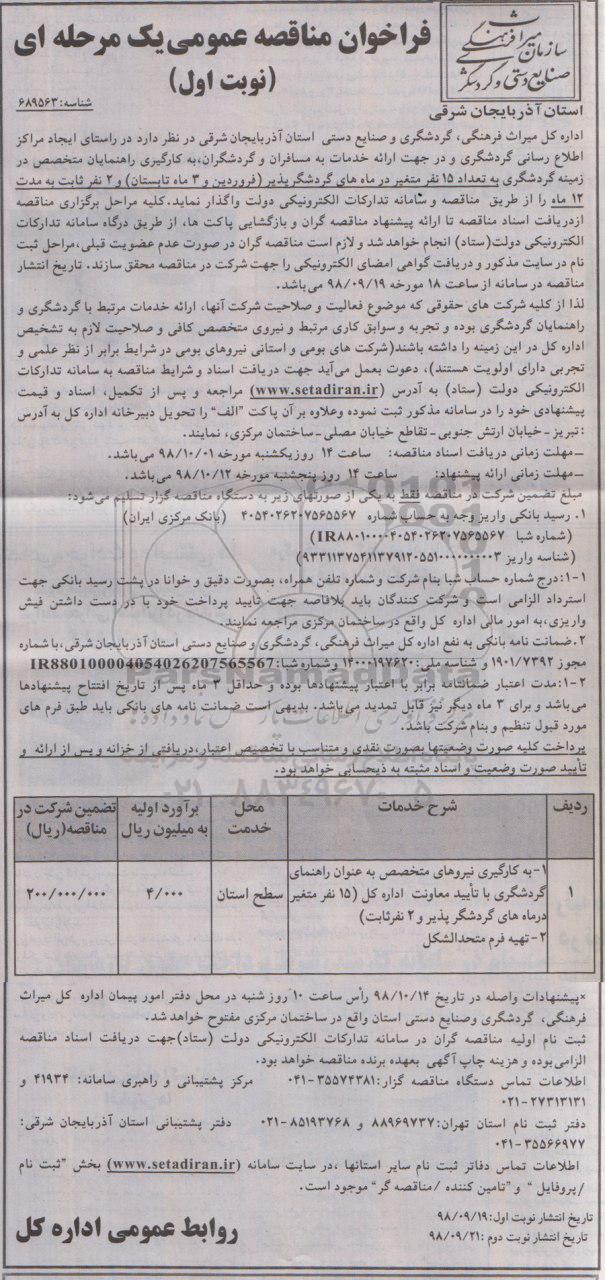 سازمان میراث فرهنگی
صنایع دستی و گردشگری
فراخوان مناقصه عمومی یک مرحله ای
(نوبت اول)
شناسه: ۶۸۹۵۶۳
استان آذربایجان شرقی
اداره کل میراث فرهنگی، گردشگری و صنایع دستی استان آذربایجان شرقی در نظر دارد در راستای ایجاد مراکز
اطلاع رسانی گردشگری و در جهت ارائه خدمات به مسافران و گردشگران،به کارگیری راهنمایان متخصص در
زمینه گردشگری به تعداد ۱۵ نفر متغیر در ماه های گردشگرپذیر (فروردین و ۳ ماه تابستان) و ۲ نفر ثابت به مدت
۱۲ ماه را از طریق مناقصه و سامانه تدارکات الکترونیکی دولت واگذار نماید.کلیه مراحل برگزاری مناقصه
ازدریافت اسناد مناقصه تا ارائه پیشنهاد مناقصه گران و بازگشایی پاکت ها، از طریق درگاه سامانه تدارکات
الکترونیکی دولت(ستاد) انجام خواهد شد و لازم است مناقصه گران در صورت عدم عضویت قبلی،مراحل ثبت
نام در سایت مذکور و دریافت گواهی امضای الکترونیکی را جهت شرکت در مناقصه محقق سازند. تاریخ انتشار
مناقصه در سامانه از ساعت ۱۸ مورخه ۹۸/۰۹/۱۹ می باشد.
لذا از کلیه شرکت های حقوقی که موضوع فعالیت و صلاحیت شرکت آنها، ارائه خدمات مرتبط با گردشگری و
راهنمایان گردشگری بوده و تجربه و سوابق کاری مرتبط و نیروی متخصص کافی و صلاحیت لازم به تشخیص
اداره کل در این زمینه را داشته باشند(شرکت های بومی و استانی نیروهای بومی در شرایط برابر از نظر علمی و
تجربی دارای اولویت هستند)، دعوت بعمل می آید جهت دریافت اسناد و شرایط مناقصه به سامانه تدارکات
الکترونیکی دولت (ستاد) به آدرس (www.setadiran.ir) مراجعه و پس از تکمیل، اسناد و قیمت
پیشنهادی خود را در سامانه مذکور ثبت نموده وعلاوه بر آن پاکت "الف" را تحویل دبیرخانه اداره کل به آدرس
:تبریز - خیابان ارتش جنوبی - تقاطع خیابان مصلی - ساختمان مرکزی، نمایند.
- مهلت زمانی دریافت اسناد مناقصه: ساعت ۱۴ روز یکشنبه مورخه ۹۸/۱۰/۰۱ می باشد.
- مهلت زمانی ارائه پیشنهاد: ساعت ۱۴ روز پنجشنبه مورخه ۹۸/۱۰/۱۲ می باشد.
مبلغ تضمین شرکت در مناقصه فقط به یکی از صورتهای زیر به دستگاه مناقصه گزار تسلیم می شود:
۱. رسید بانکی واریز وجه به حساب شماره ۴۰۵۴۰۲۶۲۰۷۵۶۵۵۶۷ (بانک مرکزی ایران)
(شماره شبا IR۸۸۰۱۰۰۰۰۴۰۵۴۰۲۶۲۰۷۵۶۵۵۶۷)
۱-۱: درج شماره حساب شبا بنام شرکت و شماره تلفن همراه، بصورت دقیق و خوانا در پشت رسید بانکی جهت
استرداد الزامی است و شرکت کنندگان باید بلافاصه جهت تایید پرداخت خود با در دست داشتن فیش
واریزی،به امور مالی اداره کل واقع در ساختمان مرکزی مراجعه نمایند.
۲.ضمانت نامه بانکی به نفع اداره کل میراث فرهنگی، گردشگری و صنایع دستی استان آذربایجان شرقی،با شماره
مجوز ۱۹۰۱/۷۳۹۲ و شناسه ملی: ۱۴۰۰۰۱۹۷۶۲۰ و شماره شبا: IR880100004054026207565567
۱-۲:مدت اعتبار ضمانتنامه برابر با اعتبار پیشنهادها بوده و حداقل ۳ ماه پس از تاریخ افتتاح پیشنهادها
می باشد و برای ۳ ماه دیگر نیز قابل تمدید می باشد. بدیهی است ضمانت نامه های بانکی باید طبق فرم های
مورد قبول تنظیم و بنام شرکت باشد.
پرداخت کلیه صورت وضعیتها بصورت نقدی و متناسب با تخصیص اعتبار،دریافتی از خزانه و پس از ارائه و
تأیید صورت وضعیت و اسناد مثبته به ذیحسابی خواهد بود.
ParsNamadData
۰۲۱-۸۸۳۴۹۶۷۰-۵
ردیف شرح خدمات محل خدمت برآورد اولیه به میلیون ریال تضمین شرکت در مناقصه(ریال)
۱ ۱-به کارگیری نیروهای متخصص به عنوان راهنمای
گردشگری با تأیید معاونت اداره کل (۱۵ نفر متغیر
درماه های گردشگر پذیر و ۲ نفرثابت)
۲- تهیه فرم متحدالشکل
سطح استان ۴/۰۰۰ ۲۰۰/۰۰۰/۰۰۰
*پیشنهادات واصله در تاریخ ۹۸/۱۰/۱۴ رأس ساعت ۱۰ روز شنبه در محل دفتر امور پیمان اداره کل میراث
فرهنگی، گردشگری وصنایع دستی استان واقع در ساختمان مرکزی مفتوح خواهد شد.
ثبت نام اولیه مناقصه گران در سامانه تدارکات الکترونیکی دولت (ستاد)جهت دریافت اسناد مناقصه
الزامی بوده و هزینه چاپ آگهی بعهده برنده مناقصه خواهد بود.
اطلاعات تماس دستگاه مناقصه گزار: ۳۵۵۷۴۳۸۱-۰۴۱ مرکز پشتیبانی و راهبری سامانه: ۴۱۹۳۴ و
۰۲۱-۲۷۳۱۳۱۳۱
دفتر ثبت نام استان تهران: ۸۸۹۶۹۷۳۷ و ۸۵۱۹۳۷۶۸-۰۲۱ دفتر پشتیبانی استان آذربایجان شرقی:
۰۴۱-۳۵۵۶۶۹۷۷
اطلاعات تماس دفاتر ثبت نام سایر استانها ،در سایت سامانه (www.setadiran.ir) بخش "ثبت نام
/پروفایل " و "تامین کننده /مناقصه گر" موجود است.
تاریخ انتشار نوبت اول: ۹۸/۰۹/۱۹
تاریخ انتشار نوبت دوم : ۹۸/۰۹/۲۱
روابط عمومی اداره کل